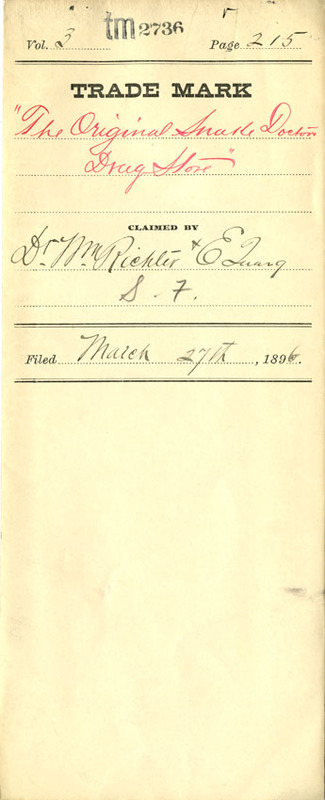 Vol. 3 tm 2736 Page 215
TRADE MARK
"The Original Snake Doctors
Drug Store"
CLAIMED BY
Dr. Wm Richter & E
S. F.
Filed March 27th, 1896.